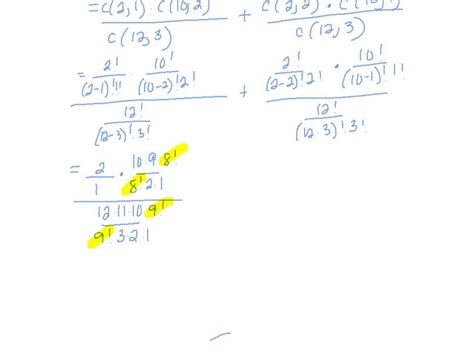 = C(2,1) · C(10,2) / C(12,3) + C(2,2) · C(10,1) / C(12,3)
= 2!/(2-1)!1! · 10!/(10-2)!2! / 12!/(12-3)!3! + 2!/(2-2)!2! · 10!/(10-1)!1! / 12!/(12-3)!3!
= 2/1 · 10·9·8!/8!2·1 / 12·11·10·9!/9!3·2·1